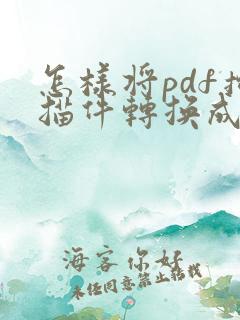 怎樣将pdf掃
描件轉換成
海客你好
未经同意禁止转载